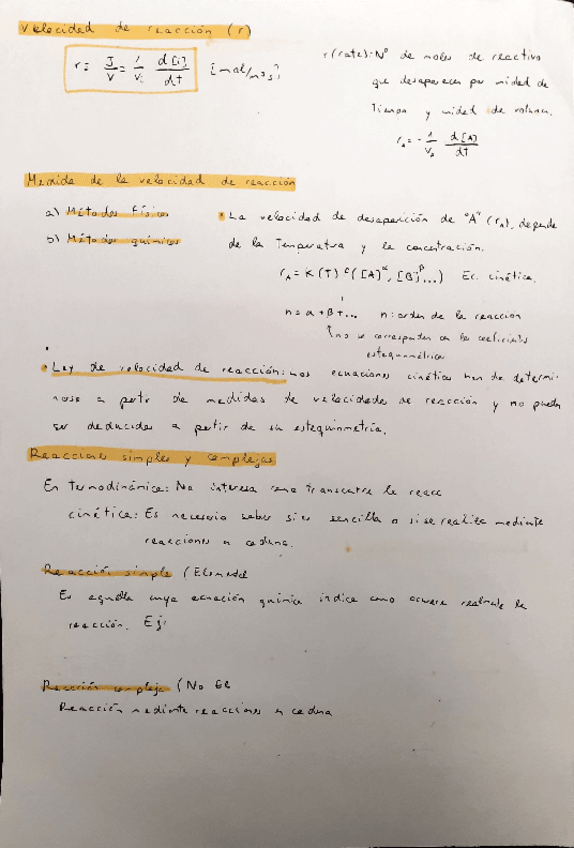 Velocidad de reacción (r)
r = J/V = 1/νi d[i]/dt [mol/m³s]
r (rate): Nº de moles de reactivo
que desaparecen por unidad de
Tiempo y unidad de volumen.
rA = - 1/νA d[A]/dt
Medida de la velocidad de reacción
a) Métodos físicos
b) Métodos químicos
• La velocidad de desaparición de "A" (rA), depende
de la Temperatura y la concentración.
rA = K(T) · ([A]^α, [B]^β...) Ec. cinética.
n = α + β + ... n: orden de la reacción
no se corresponden con los coeficientes
estequiométricos
• Ley de velocidad de reacción: Las ecuaciones cinéticas han de determi-
narse a partir de medidas de velocidades de reacción y no pueden
ser deducidas a partir de su estequiometría.
Reacciones simples y complejas
En Termodinámica: No interesa como transcurre la reacc
cinética: Es necesario saber si es sencilla o si se realiza mediante
reacciones en cadena.
Reacción simple (Elemental
Es aquella cuya ecuación química indica como ocurre realmente la
reacción. Ej:
Reacción compleja (No El
Reacción mediante reacciones en cadena